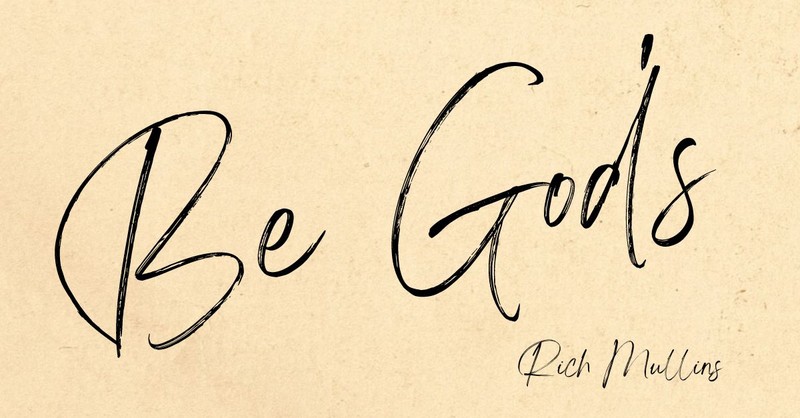 Be God's
Rich Mullins